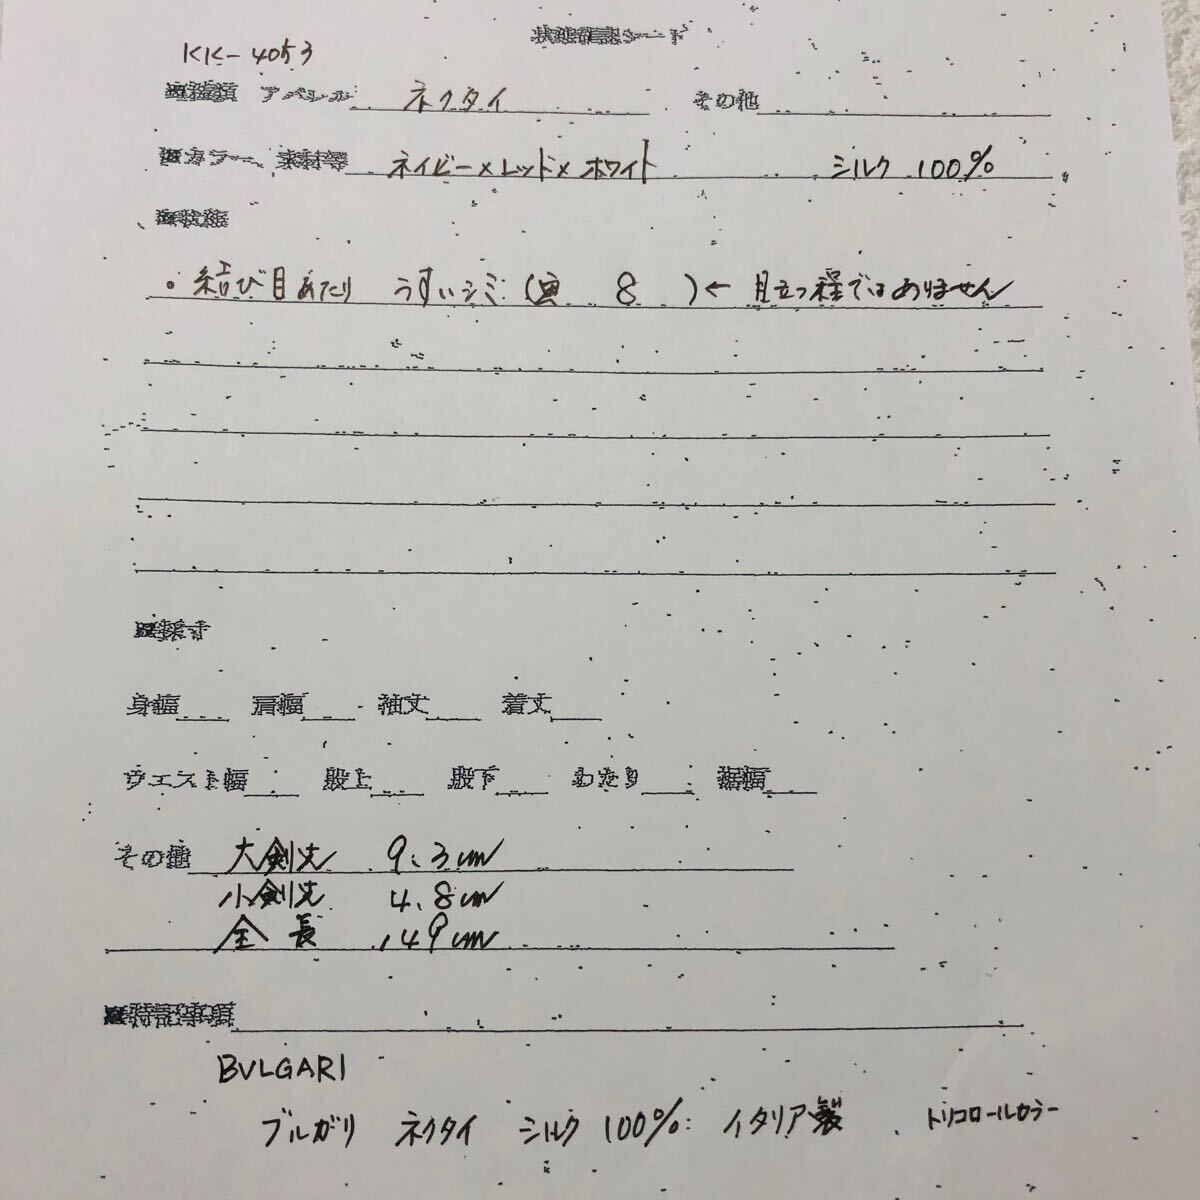 状態確認シート
KK-4053
種類 アパレル ネクタイ その他
カラー、素材等 ネイビー×レッド×ホワイト シルク 100%
状態
・結び目あたり うすいシミ (画 8 )← 目立つ程ではありません
採寸
身幅 肩幅 袖丈 着丈
ウエスト幅 股上 股下 わたり 裾幅
その他 大剣先 9.3cm
小剣先 4.8cm
全長 149cm
特記事項
BVLGARI
ブルガリ ネクタイ シルク 100% イタリア製 トリコロールカラー